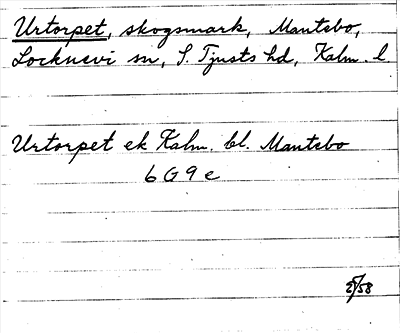 Urtorpet, skogsmark, Mantebo,
Locknevi sn, S. Tjusts hd, Kalm. l
Urtorpet ek Kalm. bl. Mantebo
6 G 9 e
58